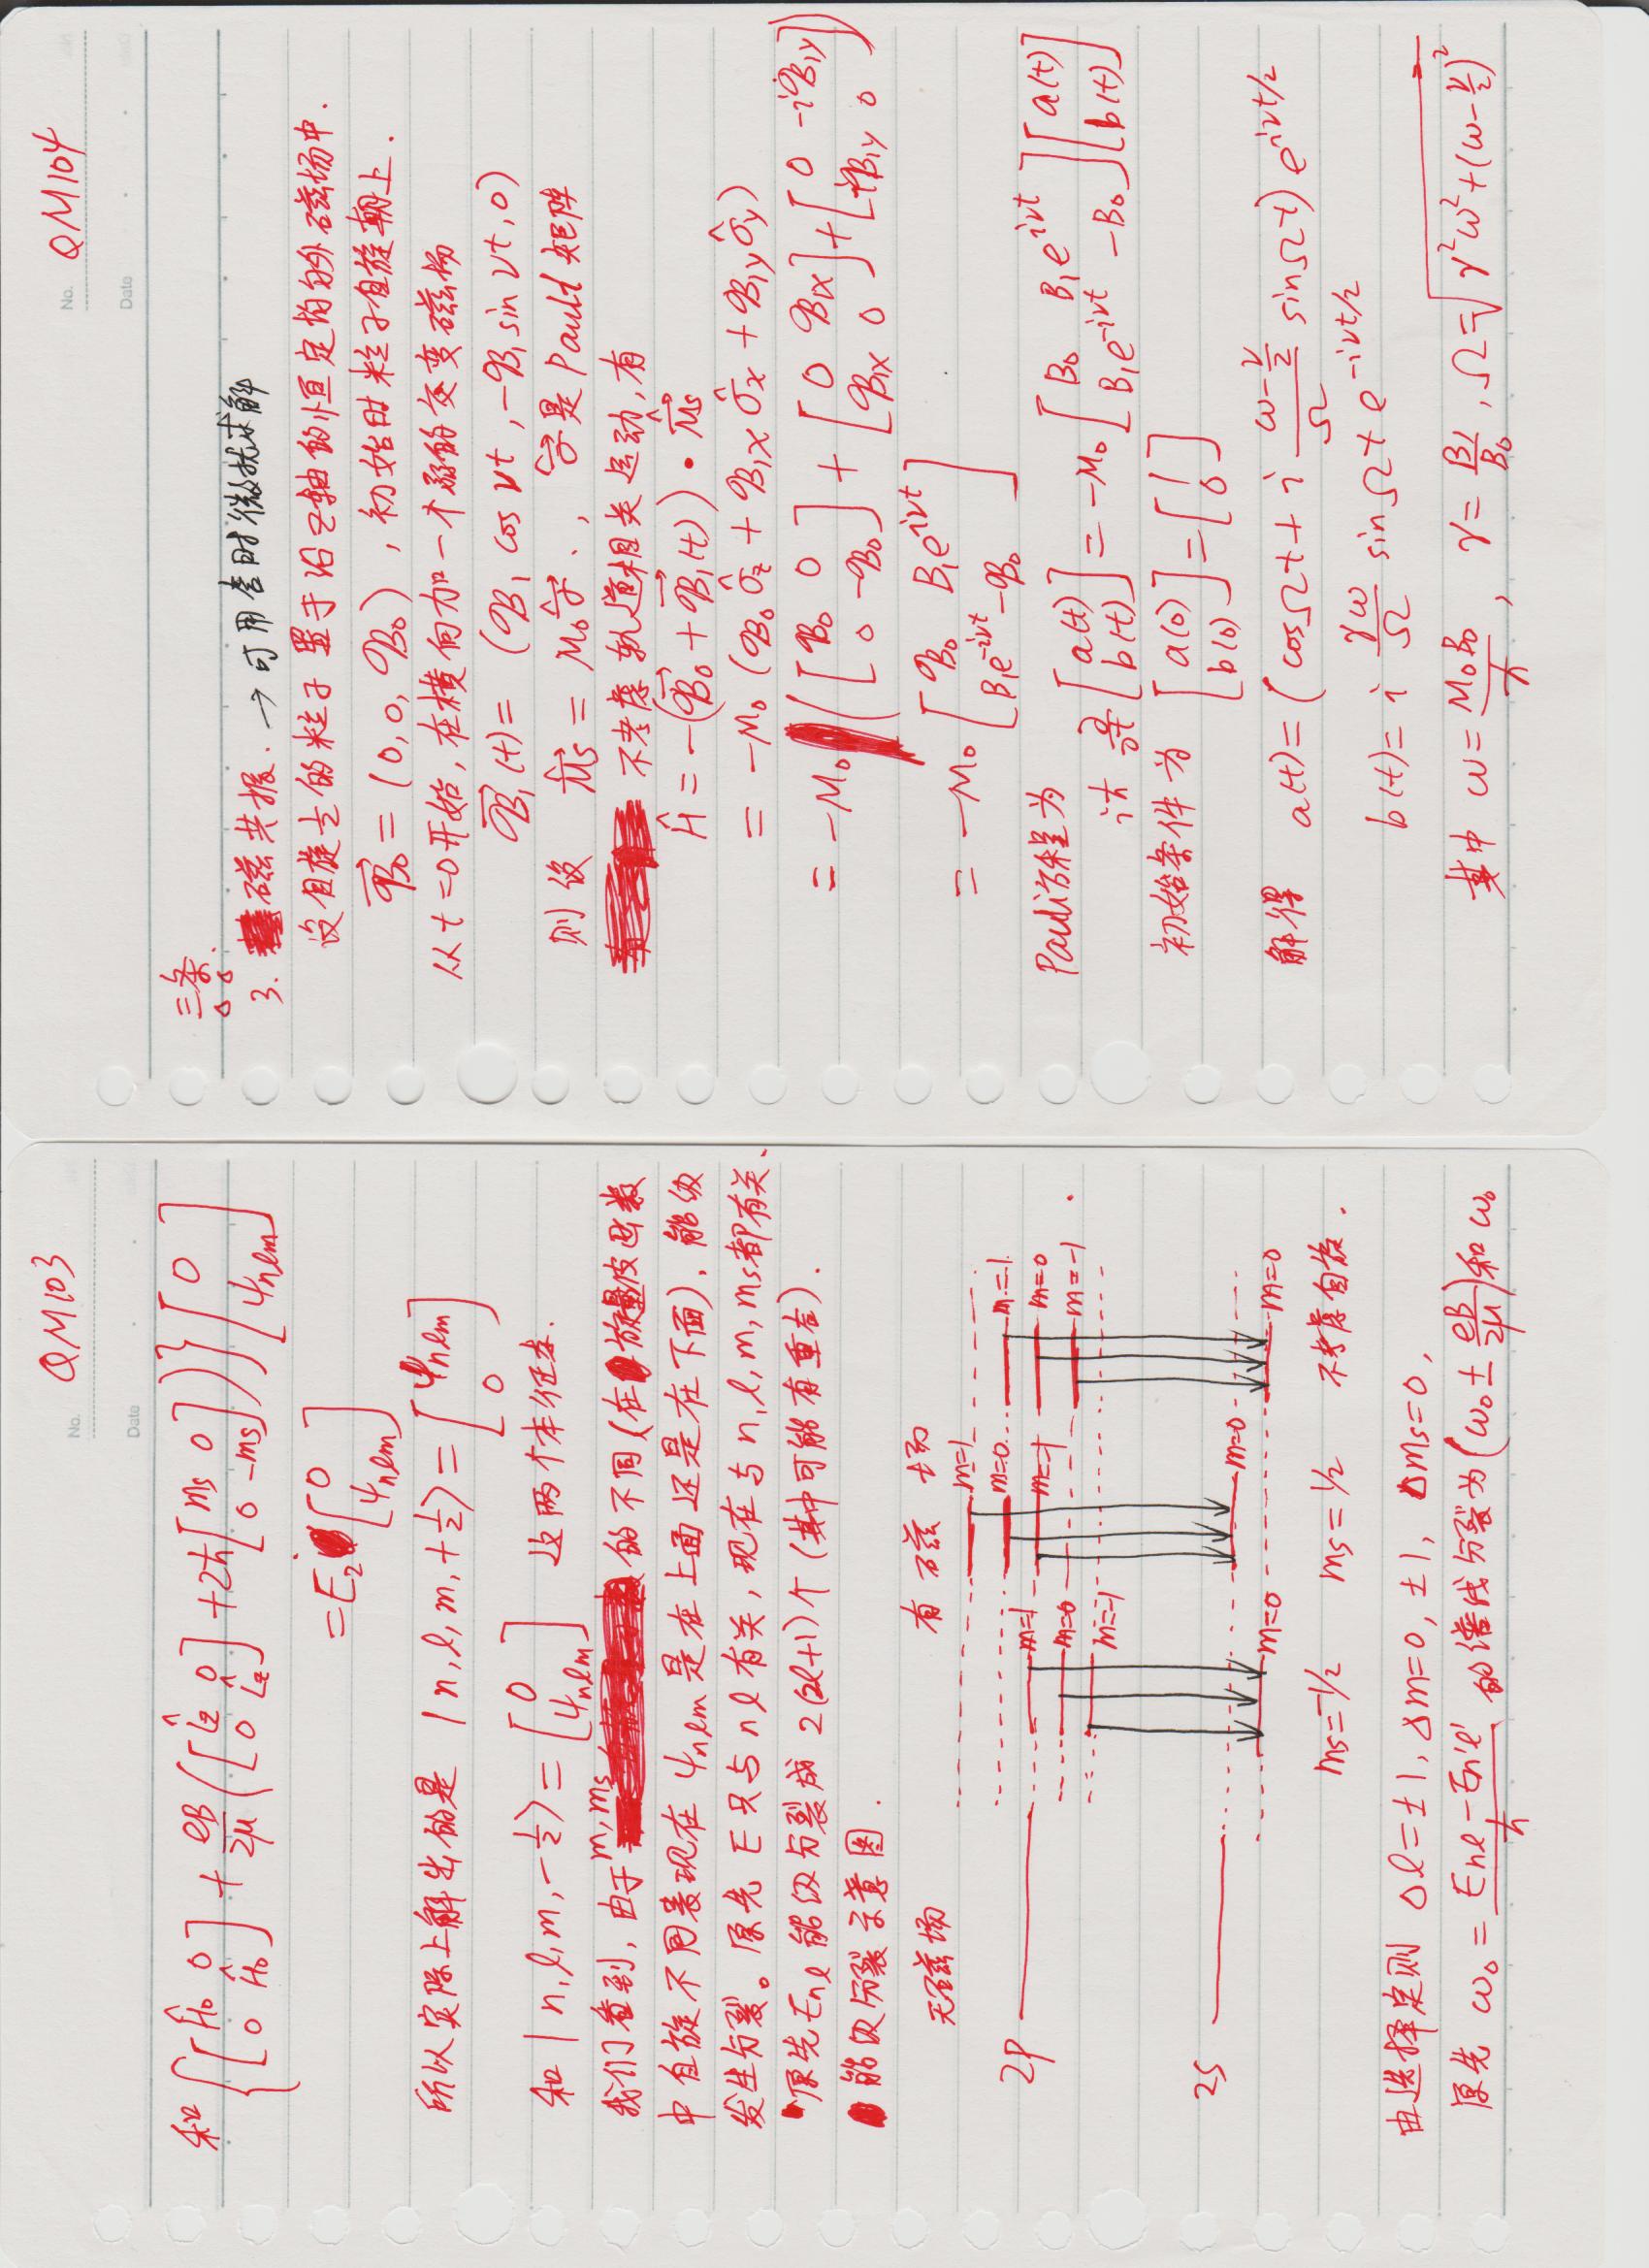 No. QM103
Date
和 { [Ĥ₀ 0; 0 Ĥ₀] + eB/2μ ( [L̂z 0; 0 L̂z] + 2ħ [ms 0; 0 -ms] ) } [0; ψnlm]
= E₂ [0; ψnlm]
所以实际上解出的是 |n, l, m, +1/2⟩ = [ψnlm; 0]
和 |n, l, m, -1/2⟩ = [0; ψnlm] 这两个本征态.
我们看到, 由于 m, ms 的不同 (在旋量波函数
中自旋不同表现在 ψnlm 是在上面还是在下面), 能级
发生分裂。原先 E 只与 nl 有关, 现在与 n, l, m, ms 都有关.
原先 Enl 能级分裂成 2(2l+1) 个 (其中可能有重合).
能级分裂示意图.
无磁场 有磁场
m=1
m=0 m=1
2p m=1 m=-1 m=0
m=0 m=-1
m=-1
2s m=0
m=0 m=0
ms=-1/2 ms=1/2 不考虑自旋.
由选择定则 Δl=±1, Δm=0, ±1, Δms=0,
原先 ω₀ = (Enl - En'l')/ħ 的谱线分裂为 (ω₀ ± eB/2μ) 和 ω₀
No. QM104
Date
三条.
3. 磁共振. → 可用含时微扰求解
设自旋½的粒子置于沿z轴的恒定均匀外磁场中.
B⃗₀ = (0, 0, B₀), 初始时粒子自旋朝上.
从 t=0 开始, 在横向加一个弱的交变磁场
B⃗₁(t) = (B₁ cos νt, -B₁ sin νt, 0)
则设 M̂⃗s = M₀ σ̂⃗., σ̂⃗ 是 Pauli 矩阵
不考虑轨道相关运动, 有
Ĥ = -(B⃗₀ + B⃗₁(t)) · M̂⃗s
= -M₀ (B₀ σ̂z + B₁x σ̂x + B₁y σ̂y)
= -M₀ ( [B₀ 0; 0 -B₀] + [0 B₁x; B₁x 0] + [0 -iB₁y; iB₁y 0] )
= -M₀ [B₀ B₁e^{iνt}; B₁e^{-iνt} -B₀]
Pauli方程为
iħ ∂/∂t [a(t); b(t)] = -M₀ [B₀ B₁e^{iνt}; B₁e^{-iνt} -B₀] [a(t); b(t)]
初始条件为 [a(0); b(0)] = [1; 0]
解得 a(t) = (cosΩt + i (ω-ν/2)/Ω sinΩt) e^{iνt/2}
b(t) = i γω/Ω sinΩt e^{-iνt/2}
其中 ω = M₀B₀/ħ, γ = B₁/B₀, Ω = √(γ²ω² + (ω-ν/2)²)